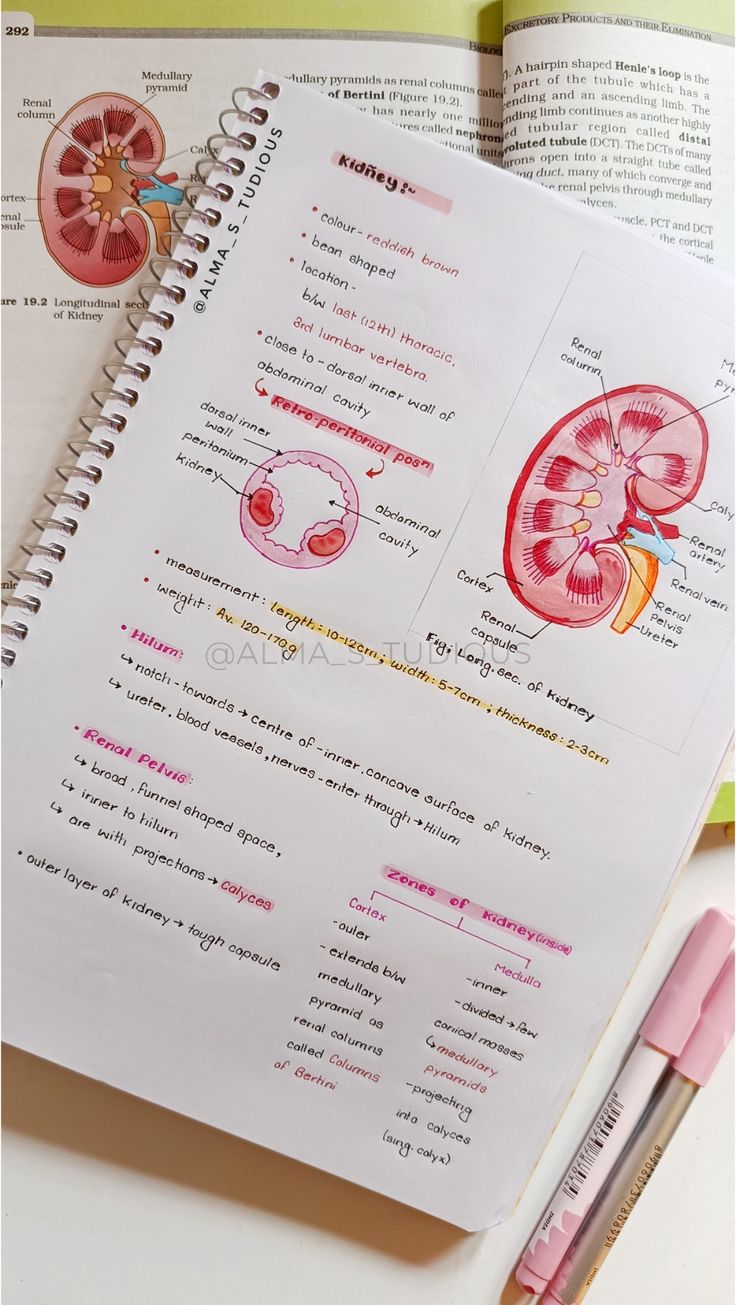 292
Medullary
pyramid
Renal
column
Longitudinal
of Kidney
dullary pyramids as renal columns called
of Bertini (Figure 19.2).
has nearly one million
called nephrons
EXCRETORY PRODUCTS AND THEIR ELIMINATION
A hairpin shaped Henle's loop is the
part of the tubule which has a
ending and an ascending limb. The
nding limb continues as another highly
ed tubular region called distal
voluted tubule (DCT). The DCTs of many
hrons open into a straight tube called
ng duct, many of which converge and
renal pelvis through medullary
alyces.
PCT and DCT
the cortical
@ALMA_S_TUDIOUS
Kidney :~
• colour - reddish brown
• bean shaped
• location -
b/w last (12th) thoracic,
3rd lumbar vertebra.
• close to - dorsal inner wall of
abdominal cavity
↳ Retro-peritonial posn
dorsal inner
wall
peritonium
Kidney
abdominal
cavity
Renal
column
Cortex
Renal
capsule
Renal
artery
Renal vein
Renal
Pelvis
Ureter
Fig; Long. sec. of Kidney
• measurement : length : 10-12cm ; width : 5-7cm ; thickness : 2-3cm
• weight : Av. 120-170g
@ALMA_S_TUDIOUS
• Hilum:
↳ notch - towards → centre of - inner, concave surface of kidney.
↳ ureter, blood vessels, nerves - enter through → Hilum
• Renal Pelvis:
↳ broad, funnel shaped space,
↳ inner to hilum
↳ are with projections → Calyces
• outer layer of kidney → tough capsule
Zones of Kidney (inside)
Cortex
- outer
- extends b/w
medullary
pyramid as
renal columns
called Columns
of Bertini
Medulla
- inner
- divided → few
conical masses
↳ medullary
pyramids
- projecting
into calyces
(sing. calyx)
INDIA
INDIA